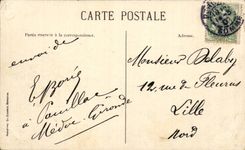 CARTE POSTALE
Partie réservée à la correspondance.
Adresse.
envoi de
E. Boré
à Pauillac
Médoc Gironde
Monsieur Delaby
12, rue de Fleurus
Lille
Nord